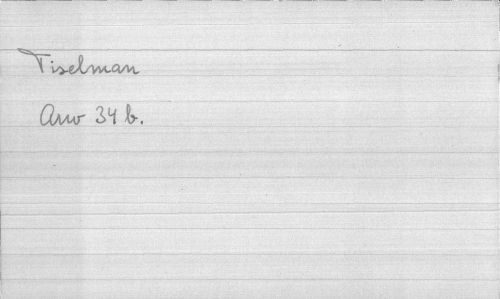 Tiselman
Arw 34 b.